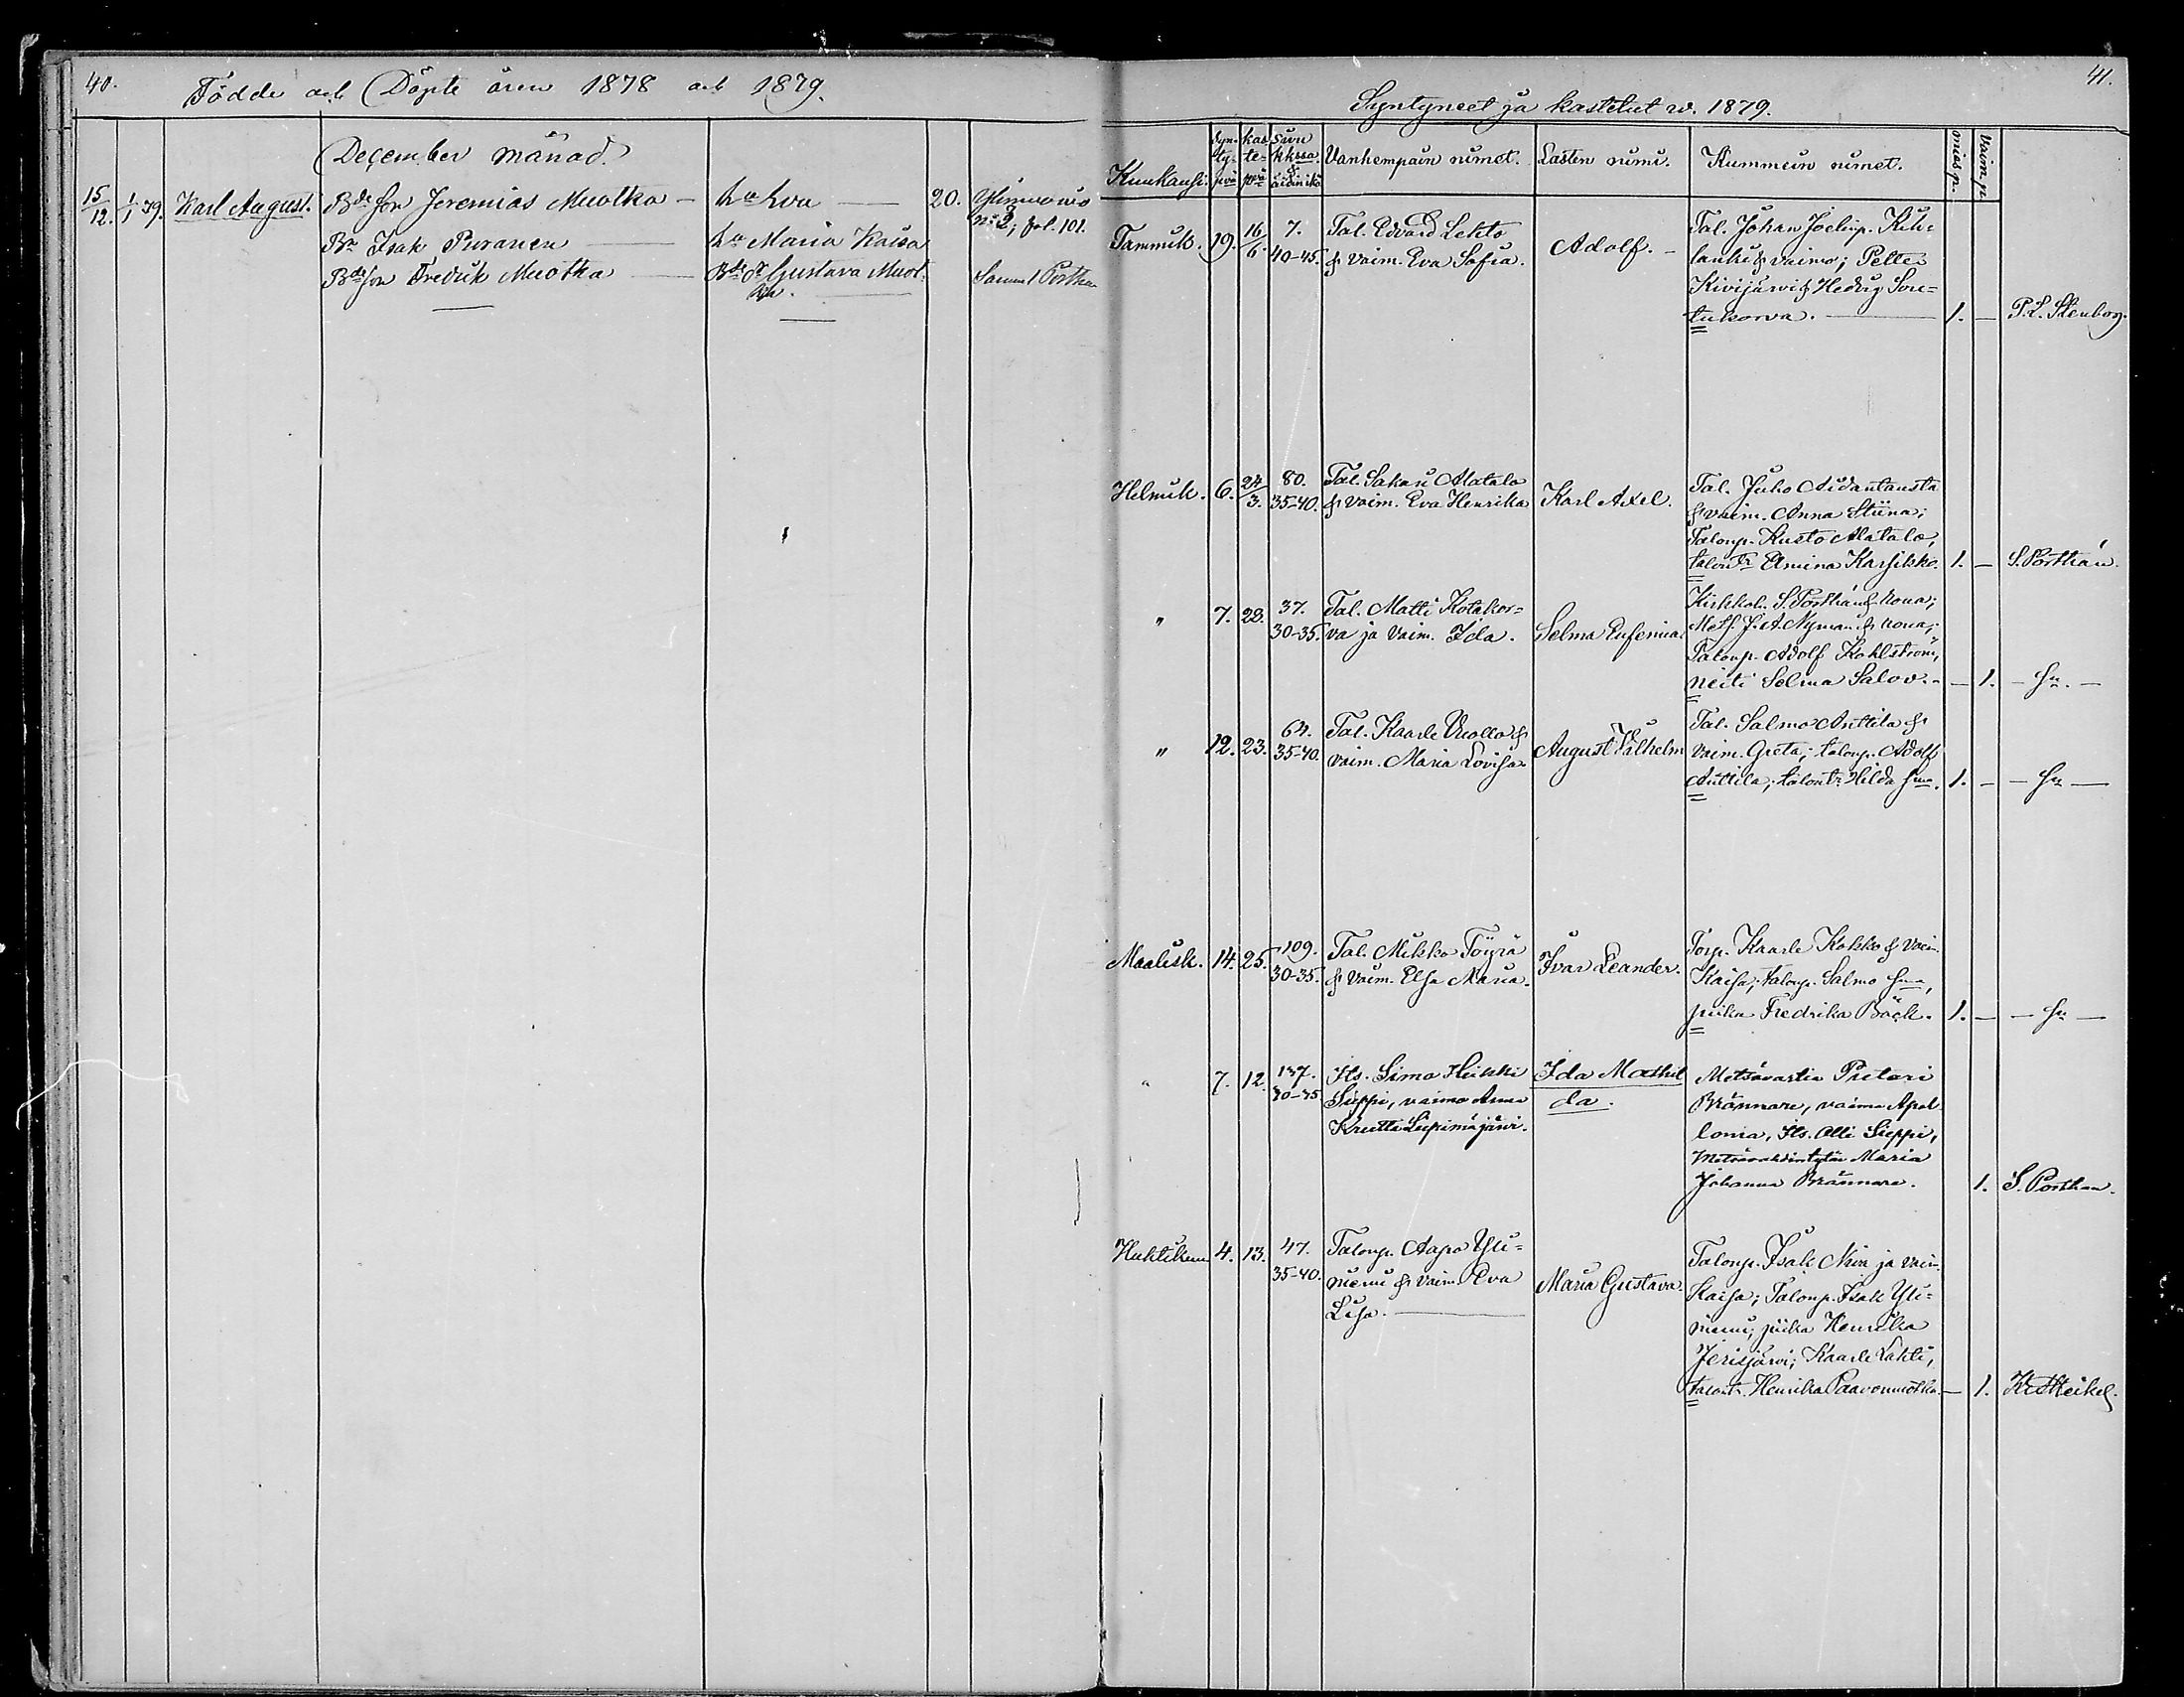 40.
Födde och Döpte åren 1878 och 1879.
December månad.
15/12. 1/1 79. Karl August. Bde son Jeremias Muotka — hu Eva — 20. Ylimuonio
No 2, fol. 101.
Bn Isak Puranen — hu Maria Kaisa
Bde son Fredrik Muotka — Bde dr Gustava Muot-
ka. — Samuel Porthan
41.
Syntyneet ja kastetut w. 1879.
Kuukausi. Syn-ty-pvä kas-te-pvä Sivu kkssa & äidin ikä Vanhempain nimet. Lasten nimi. Kummein nimet. miesp. Vaimp.
Tammik. 19. 16/6. 7. 40-45. Tal. Edvard Lehto
& vaim. Eva Sofia. Adolf. —
Tal. Johan Joelinp. Kih-
lanki & vaimo; Petter
Kivijärvi & Hedvig Sou-
tukorva. — 1. — P. L. Stenborg.
Helmik. 6. 24/3. 80. 35-40. Tal. Sakari Alatalo
& vaim. Eva Henrika Karl Axel.
Tal. Juho Aidantausta
& vaim. Anna Stiina;
Talonp. Kusto Alatalo,
talontr Elmina Karsikko. 1. — S. Porthán.
" 7. 28. 37. 30-35. Tal. Matti Kotakor-
va ja vaim. Ida. Selma Eufemia.
Kirkkoh. S. Porthán & rouva;
Metsh. J. A. Nyman & rouva;
Talonp. Adolf Kohlström,
neiti Selma Salov. — — 1. — Sn. —
" 12. 23. 64. 35-40. Tal. Kaarle Vuollo &
vaim. Maria Lovisa August Vilhelm
Tal. Salmo Anttila &
vaim. Greta; talonp. Adolf
Anttila; talontr Hilda sma. 1. — — Sn —
Maalisk. 14. 25. 109. 30-35. Tal. Mikko Töyrä
& vaim. Elsa Maria. Ivar Leander.
Torp. Kaarle Kokko & vaim.
Kaisa; talonp. Salmo sma,
piika Fredrika Bäck. 1. — — Sn —
" 7. 12. 137. Its. Simo Heikki
Sieppi, vaimo Anna
Kreetta Liepimäjärvi. Ida Mathil
da.
Metsävartia Pietari
Brännare, vaimo Apol
lonia, Its. Olli Sieppi,
Metsävahdintytär Maria
Johanna Brännare. 1. S. Porthan.
Huhtikuu 4. 13. 47. 35-40. Talonp. Aapo Yli-
niemi & vaim. Eva
Lisa. — Maria Gustava.
Talonp. Isak Niva ja vaim.
Kaisa; Talonp. Isak Yli-
niemi; piika Henrika
Jerisjärvi; Kaarle Lahti,
talontr. Henrika Paavonmotka. — 1. K. Heikel.